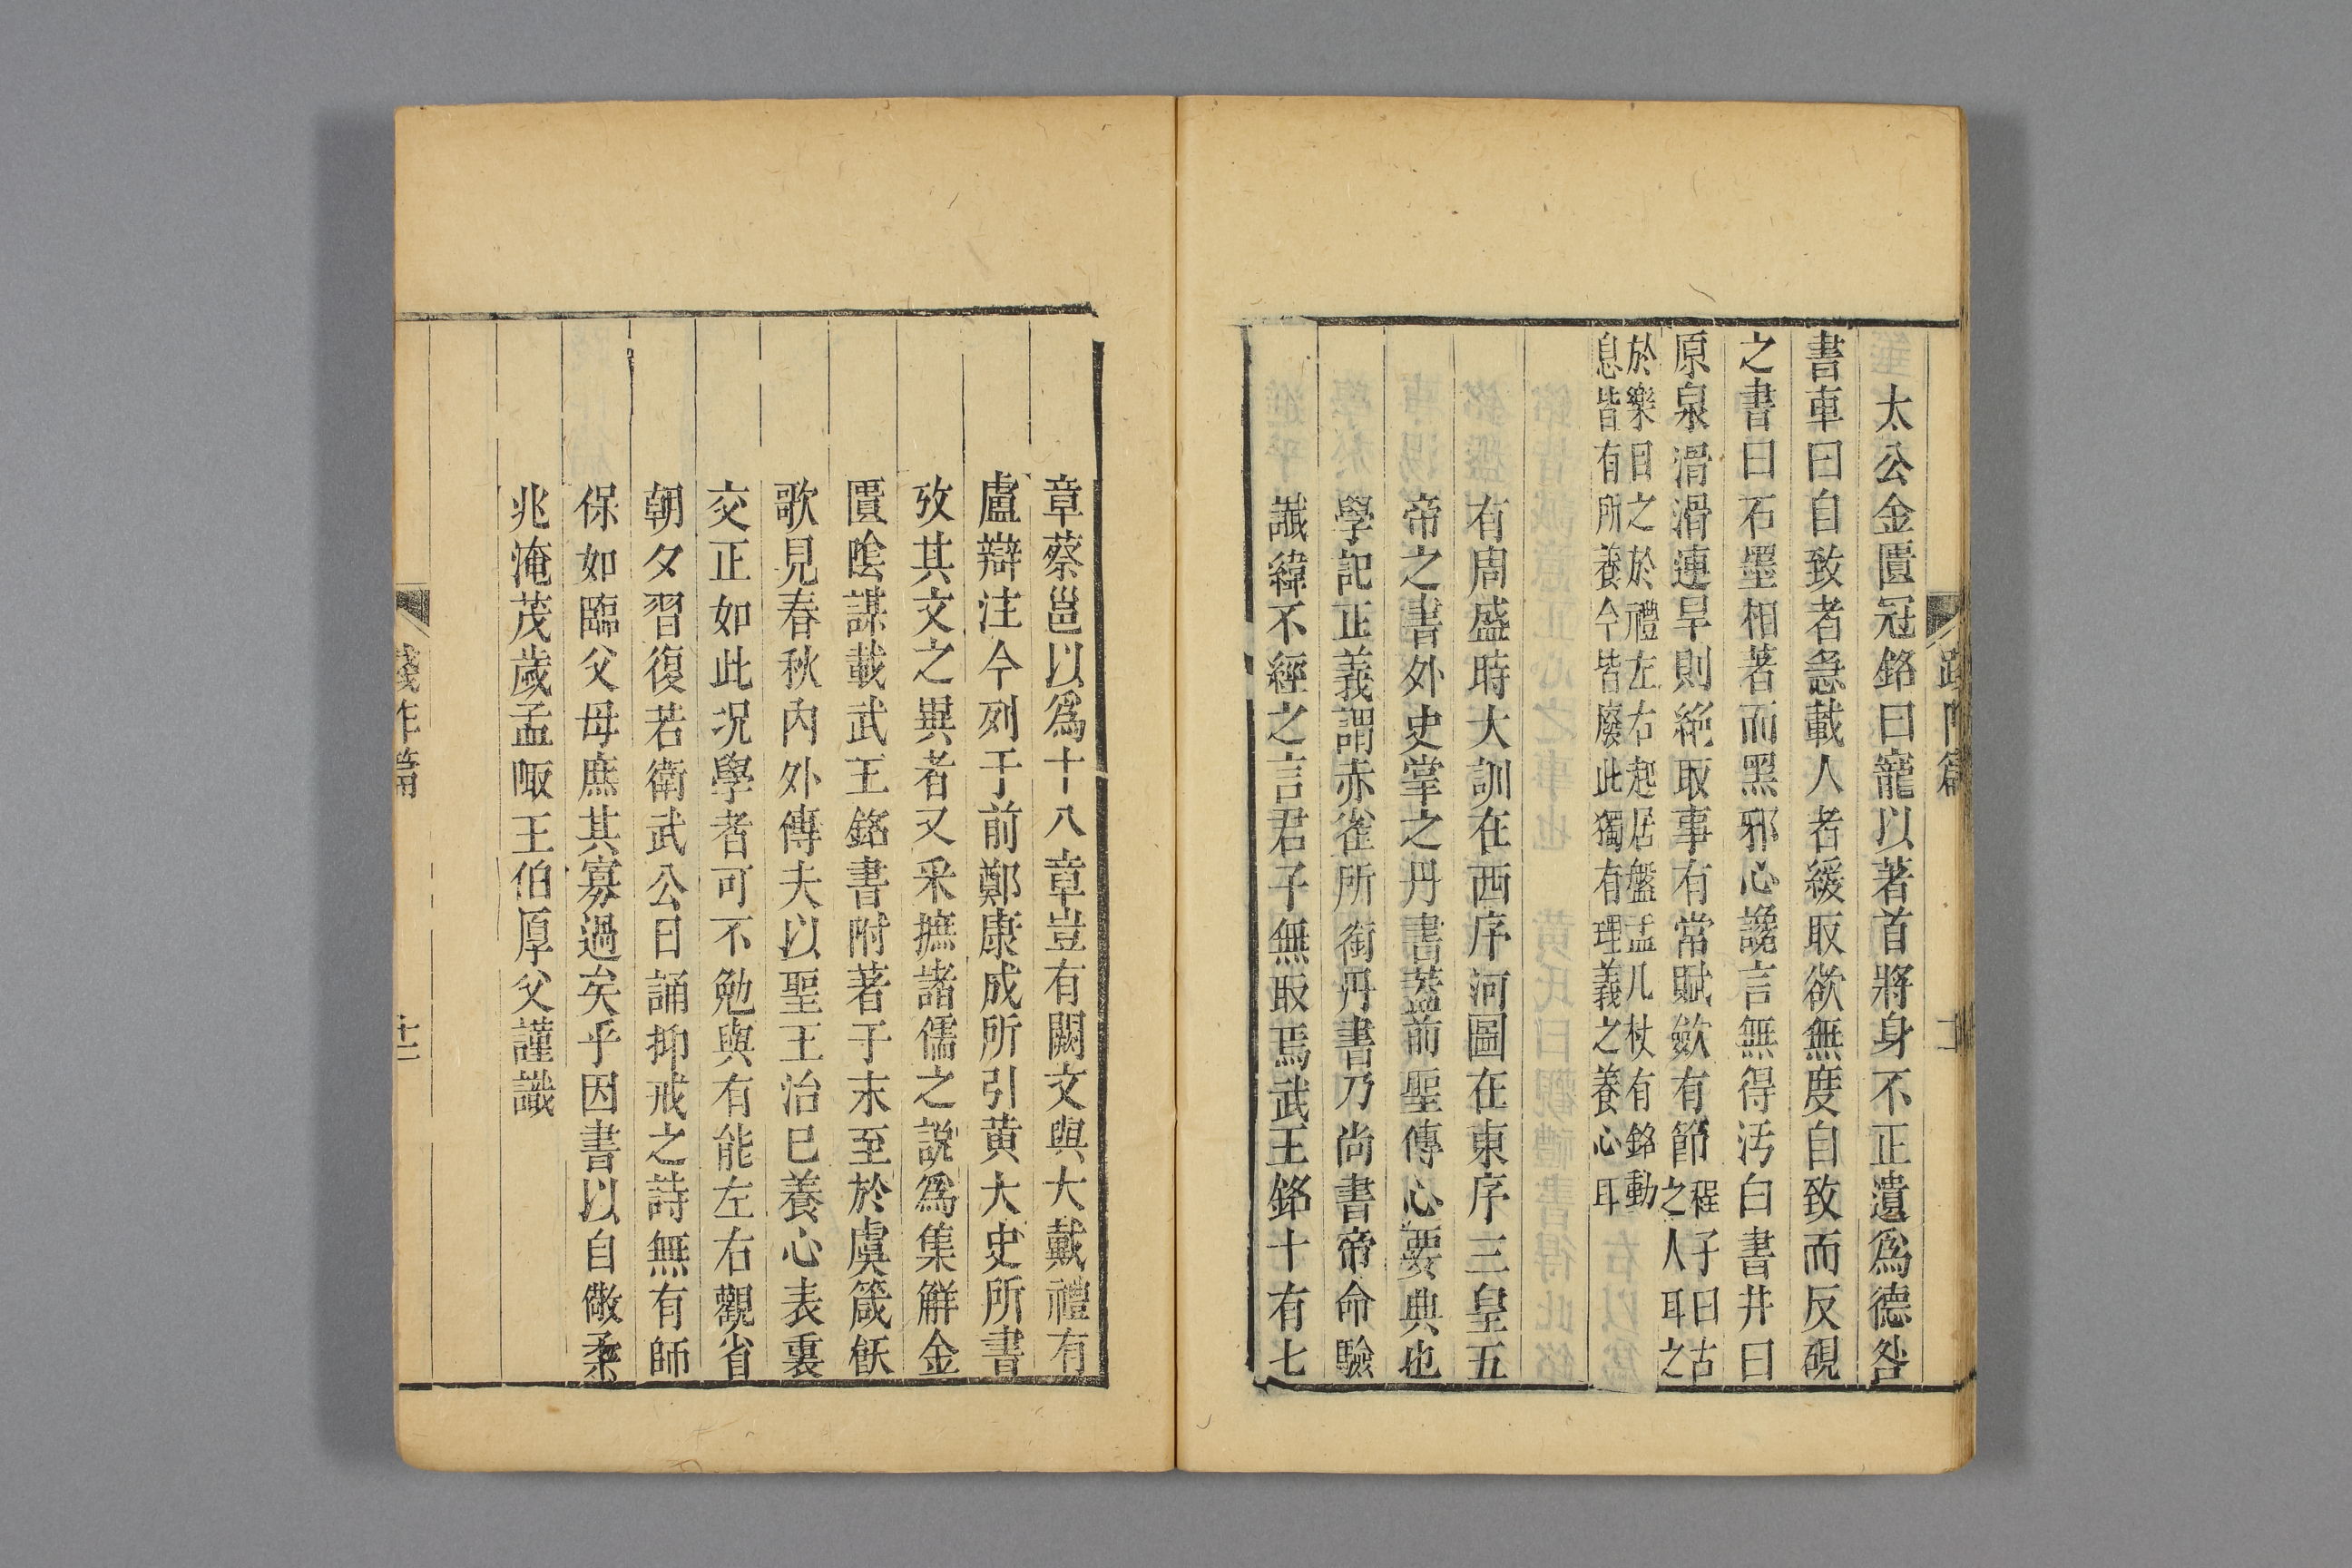 太公金匱冠銘曰寵以著首將身不正遺爲德咎
書車曰自致者急載人者緩取欲無度自致而反硯
之書曰石墨相著而黑邪心讒言無得汚白書井曰
原泉滑滑連旱則絶取事有常賦歛有節程子曰古之人耳之
於樂目之於禮左右起居盤盂几杖有銘動
息皆有所養今皆廢此獨有理義之養心耳
有周盛時大訓在西序河圖在東序三皇五
帝之書外史掌之丹書蓋前聖傳心要典也
學記正義謂赤雀所銜丹書乃尚書帝命驗
讖緯不經之言君子無取焉武王銘十有七
章蔡邕以爲十八章豈有闕文與大戴禮有
盧辯注今列于前鄭康成所引黄大史所書
攷其文之異者又采摭諸儒之說爲集解金
匱陰謀載武王銘書附著于末至於虞箴飫
歌見春秋內外傳夫以聖王治已養心表裏
交正如此况學者可不勉與有能左右觀省
朝夕習復若衛武公日誦抑戒之詩無有師
保如臨父母庶其寡過矣乎因書以自儆柔
兆淹茂歲孟陬王伯厚父謹識
踐阼篇
十二